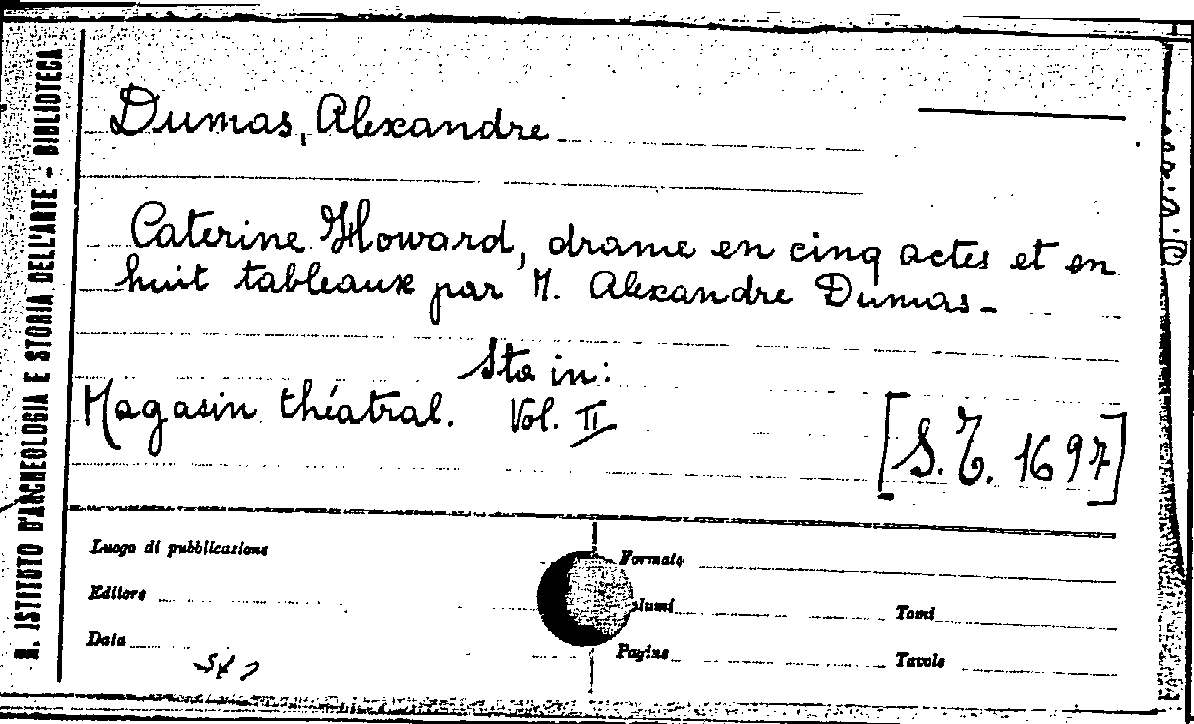 R. ISTITUTO D'ARCHEOLOGIA E STORIA DELL'ARTE - BIBLIOTECA
Dumas, Alexandre
Caterine Howard, drame en cinq actes et en
huit tableaux par M. Alexandre Dumas -
Sta in:
Magasin théatral. Vol. II
[S.T. 1697]
Luogo di pubblicazione
Formato
Editore
lumi
Tomi
Data
Pagine
Tavole